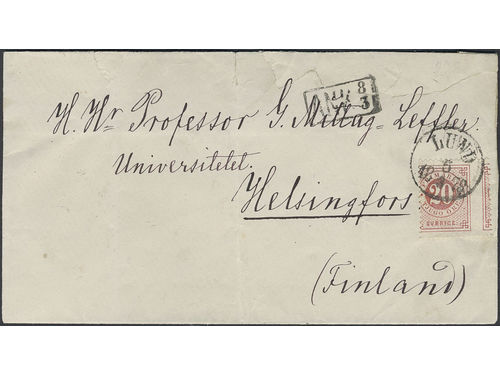 H. Hr Professor G. Mittag-Leffler.
Universitetet.
Helsingfors
(Finland)
LUND
6
20
TJUGO ÖRE
SVERIGE
ANK
8
3